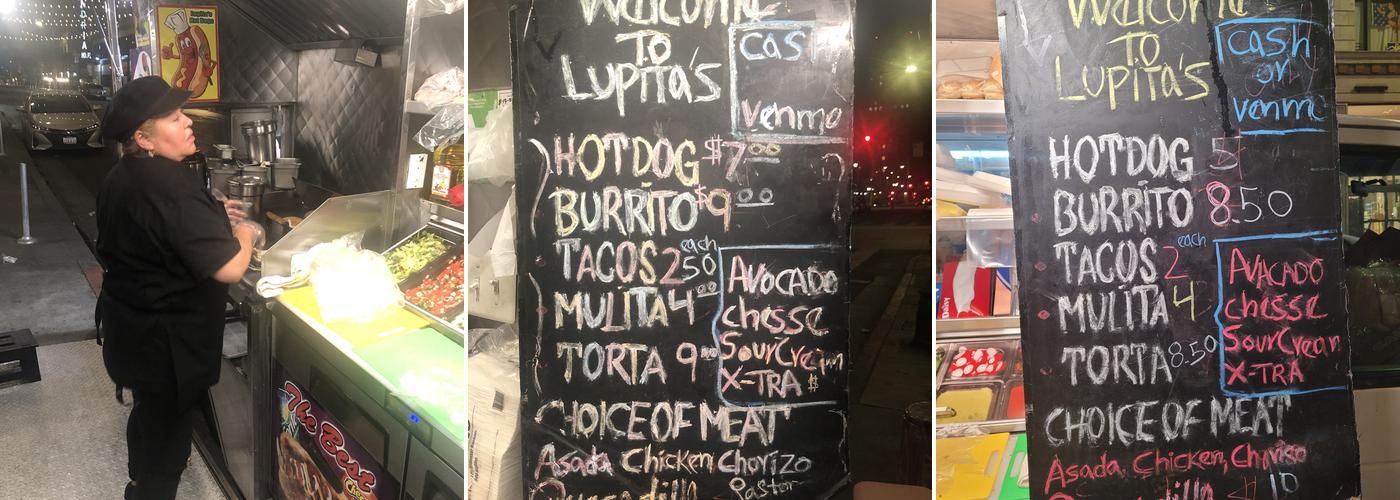 Lupita's
Hot Dogs
The Best
Welcome
TO
LUPITA'S
CAS
venmo
HOTDOG $7.00
BURRITO $9.00
TACOS 2.50 each
MULITA 4.00
TORTA 9.00
AVOCADO
chesse
SourCream
X-TRA $
CHOICE OF MEAT
Asada, Chicken, Chorizo
Pastor
Welcome
TO
LUPITA'S
cash
or
venmo
HOTDOG 5
BURRITO 8.50
TACOS 2 each
MULITA 4
TORTA 8.50
AVACADO
chesse
SourCream
X-TRA
CHOICE OF MEAT
Asada, Chicken, Chorizo
10